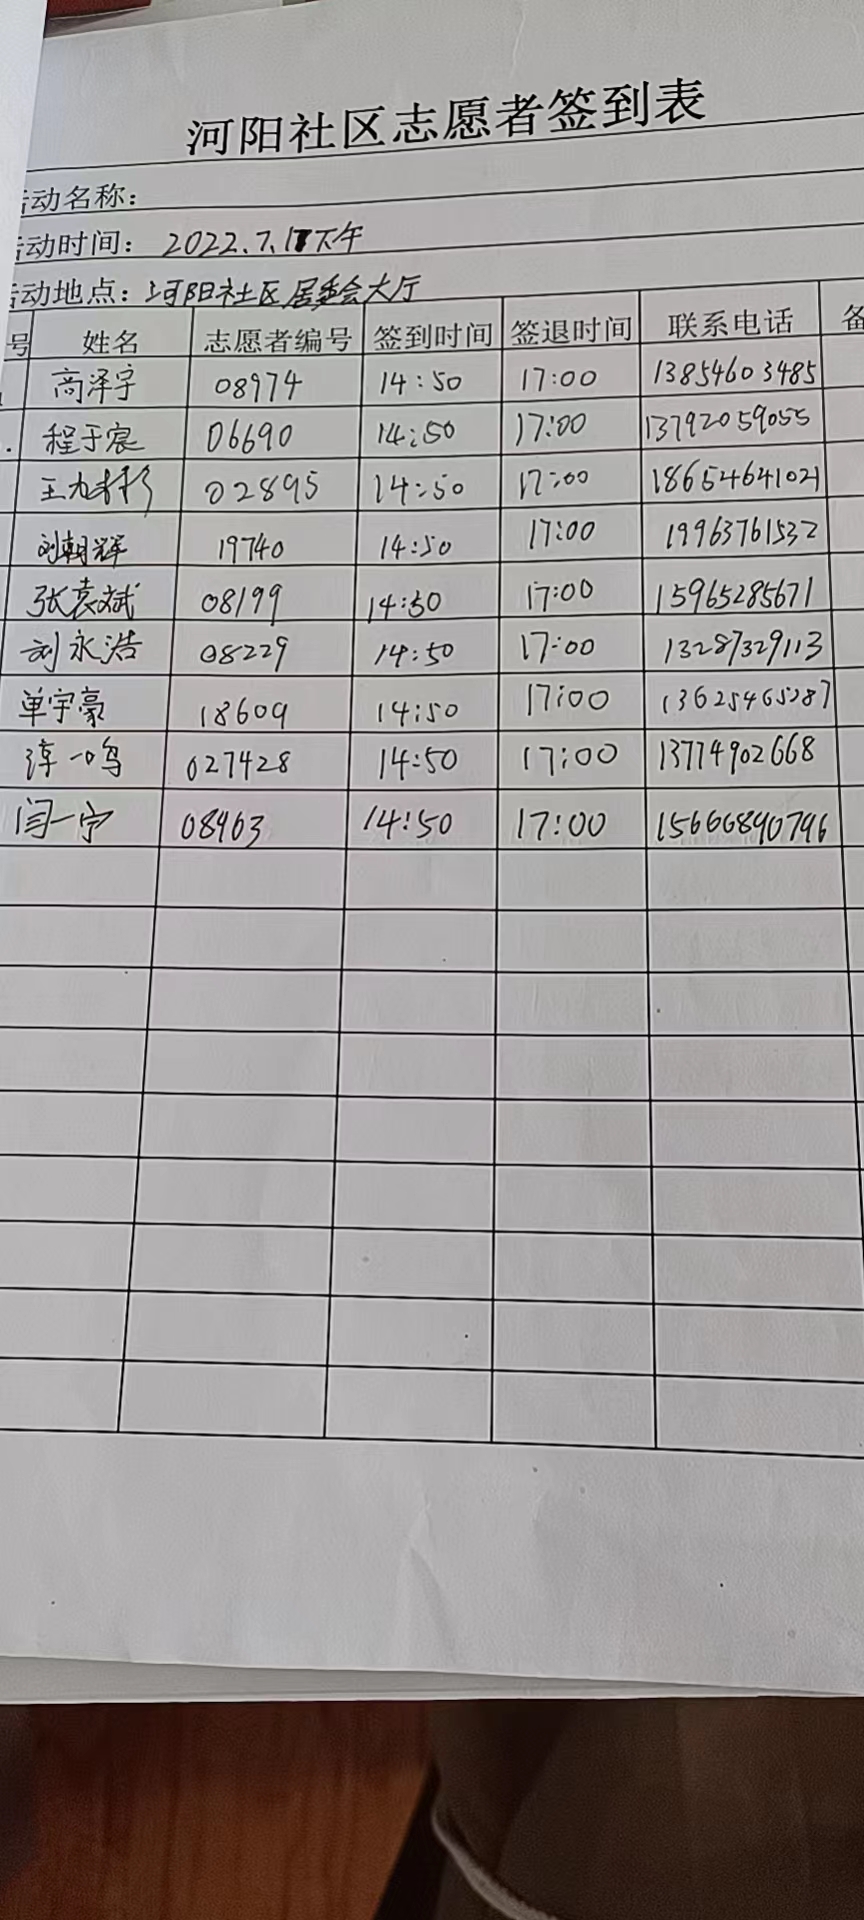 河阳社区志愿者签到表
活动名称：
活动时间： 2022.7.1 下午
活动地点：河阳社区居委会大厅
号 姓名 志愿者编号 签到时间 签退时间 联系电话 备
高泽宇 08974 14:50 17:00 13854603485
程于宸 06690 14:50 17:00 13792059055
王 02895 14:50 17:00 18654641021
刘朝辉 19740 14:50 17:00 19963761532
张袁斌 08199 14:50 17:00 15965285671
刘永浩 08229 14:50 17:00 13287329113
单宇豪 18609 14:50 17:00 13625465287
一鸣 027428 14:50 17:00 13774902668
闫一宁 08463 14:50 17:00 15666890796